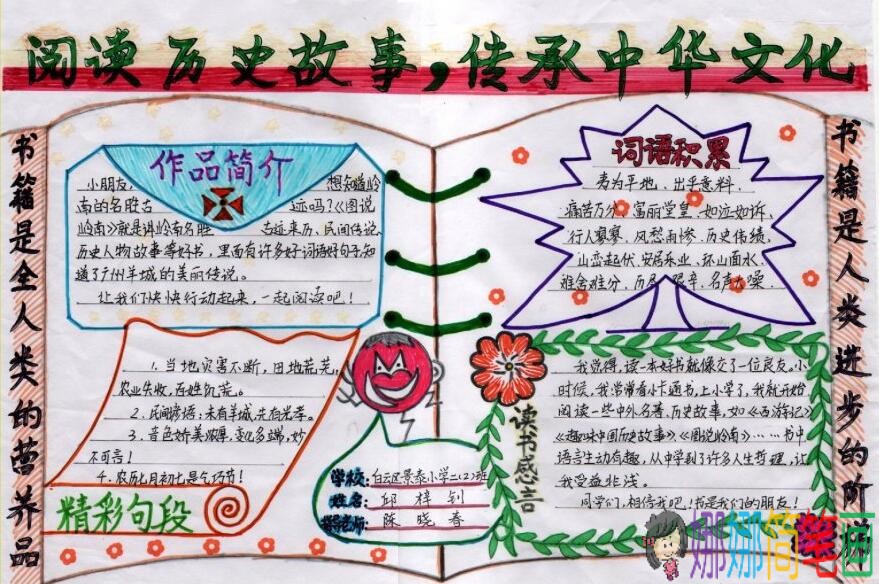 阅读历史故事,传承中华文化
书籍是全人类的营养品
作品简介
小朋友, 想知道岭
南的名胜古 迹吗?《图说
岭南》就是讲岭南名胜 古迹来历、民间传说、
历史人物故事等好书,里面有许多好词语好句子,知
道了广州羊城的美丽传说。
让我们快快行动起来,一起阅读吧!
1. 当地灾害不断,田地荒芜,
农业失收,百姓饥荒。
2. 民间谚语:未有羊城,先有光孝。
3. 音色娇美浑厚,变化多端,妙
不可言!
4. 农历七月初七是乞巧节!
精彩句段
学校:白云区景泰小学二(2)班
姓名:邱梓钊
辅导老师:陈晓春
词语积累
夷为平地、出乎意料、
痛苦万分、富丽堂皇、如泣如诉、
行人寥寥、风愁雨惨、历史伟绩、
山峦起伏、安居乐业、环山面水、
难舍难分、历尽艰辛、名声大噪、
读书感言
我觉得,读一本好书就像交了一位良友。小
时候,我常常看小卡通书,上小学了,我就开始
阅读一些中外名著、历史故事,如《西游记》
《趣味中国历史故事》、《图说岭南》……书中
语言生动有趣,从中学到了许多人生哲理,让
我受益非浅。
同学们,相信我吧!书是我们的朋友!
书籍是人类进步的阶
娜娜简笔画